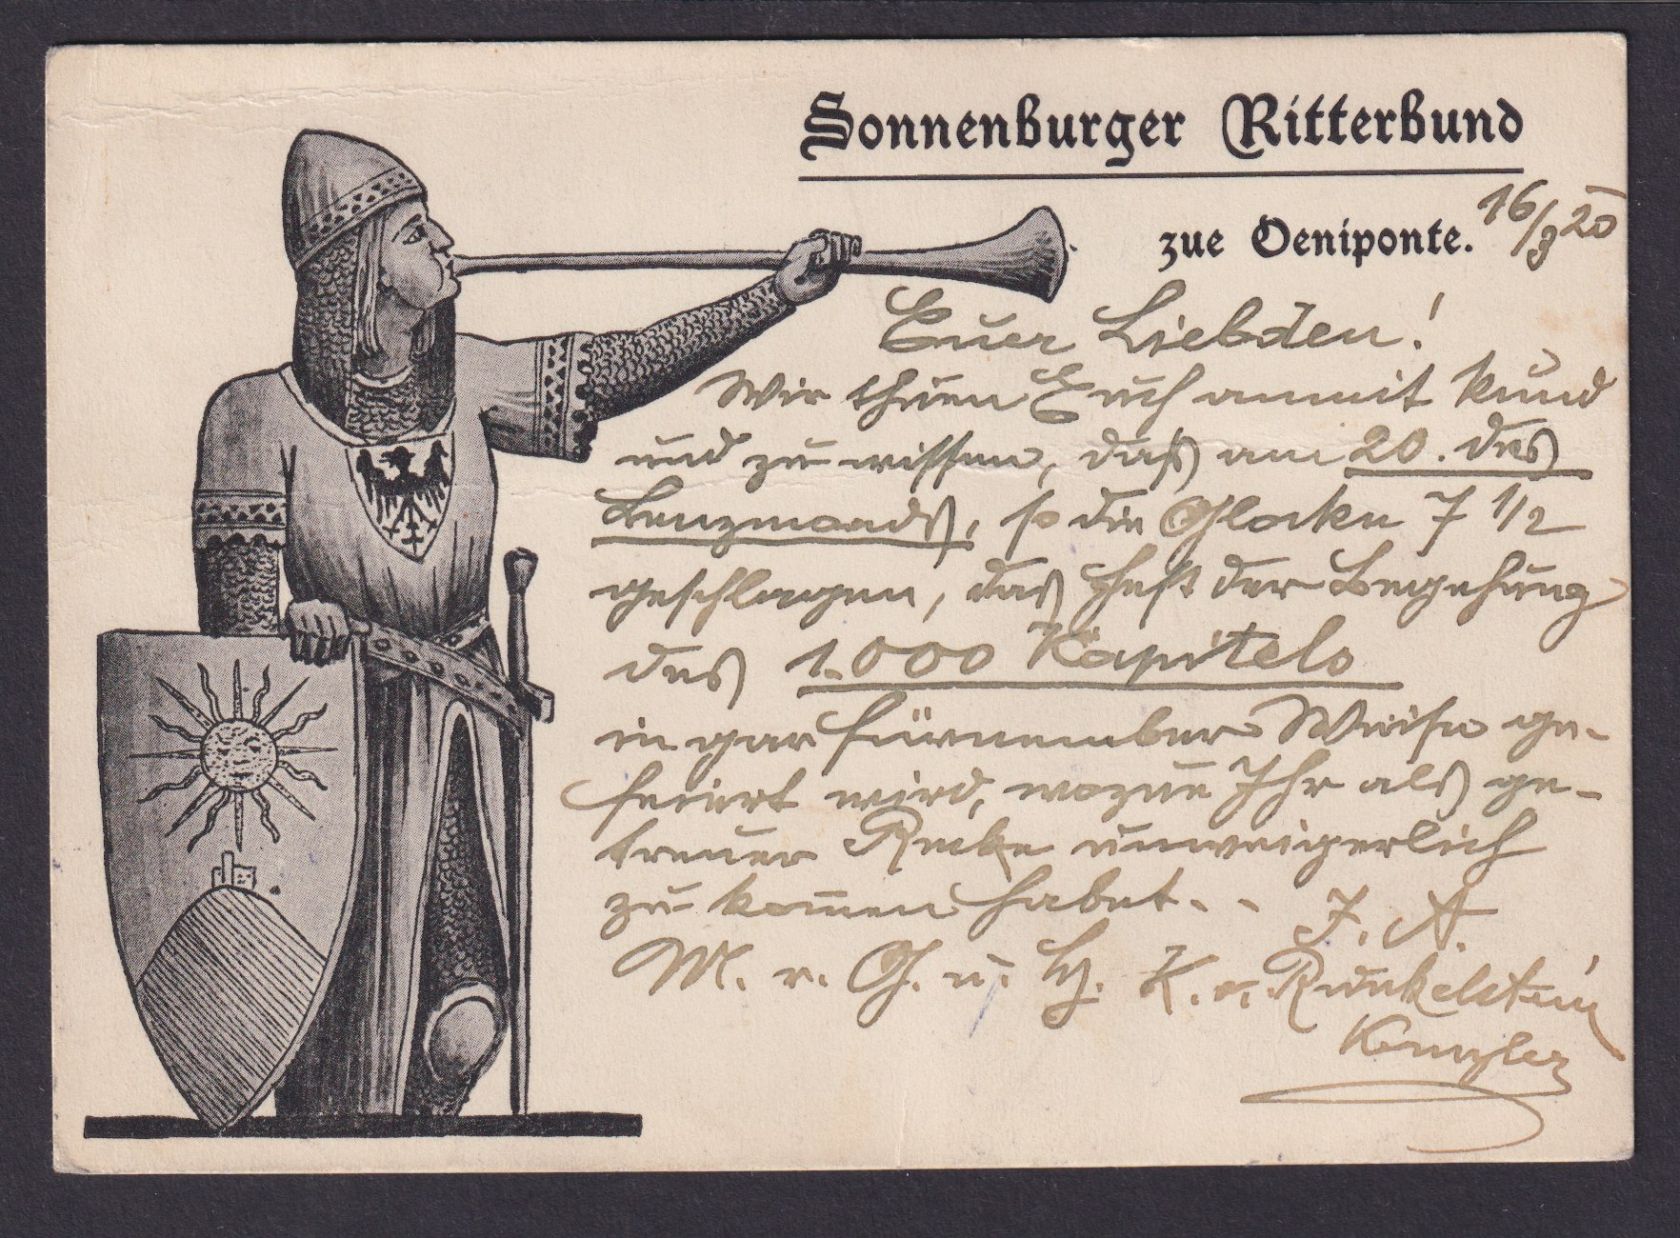 Sonnenburger Ritterbund
zue Oeniponte.
16/3 20
Euer Liebden!
Wir thuen Euch anmit kund
und zu wissen, daß am 20. des
Lenzmonds, so die Glocken 7 1/2
geschlagen, das Fest der Begehung
des 1.000 Kapitels
in gar fürnember Weise ge-
feiert wird, wozue Ihr als ge-
treuer Recke unweigerlich
zu kom̄en habet. -
I. A.
M. r. G. u. H. K. v. Runkelstein
Kanzler